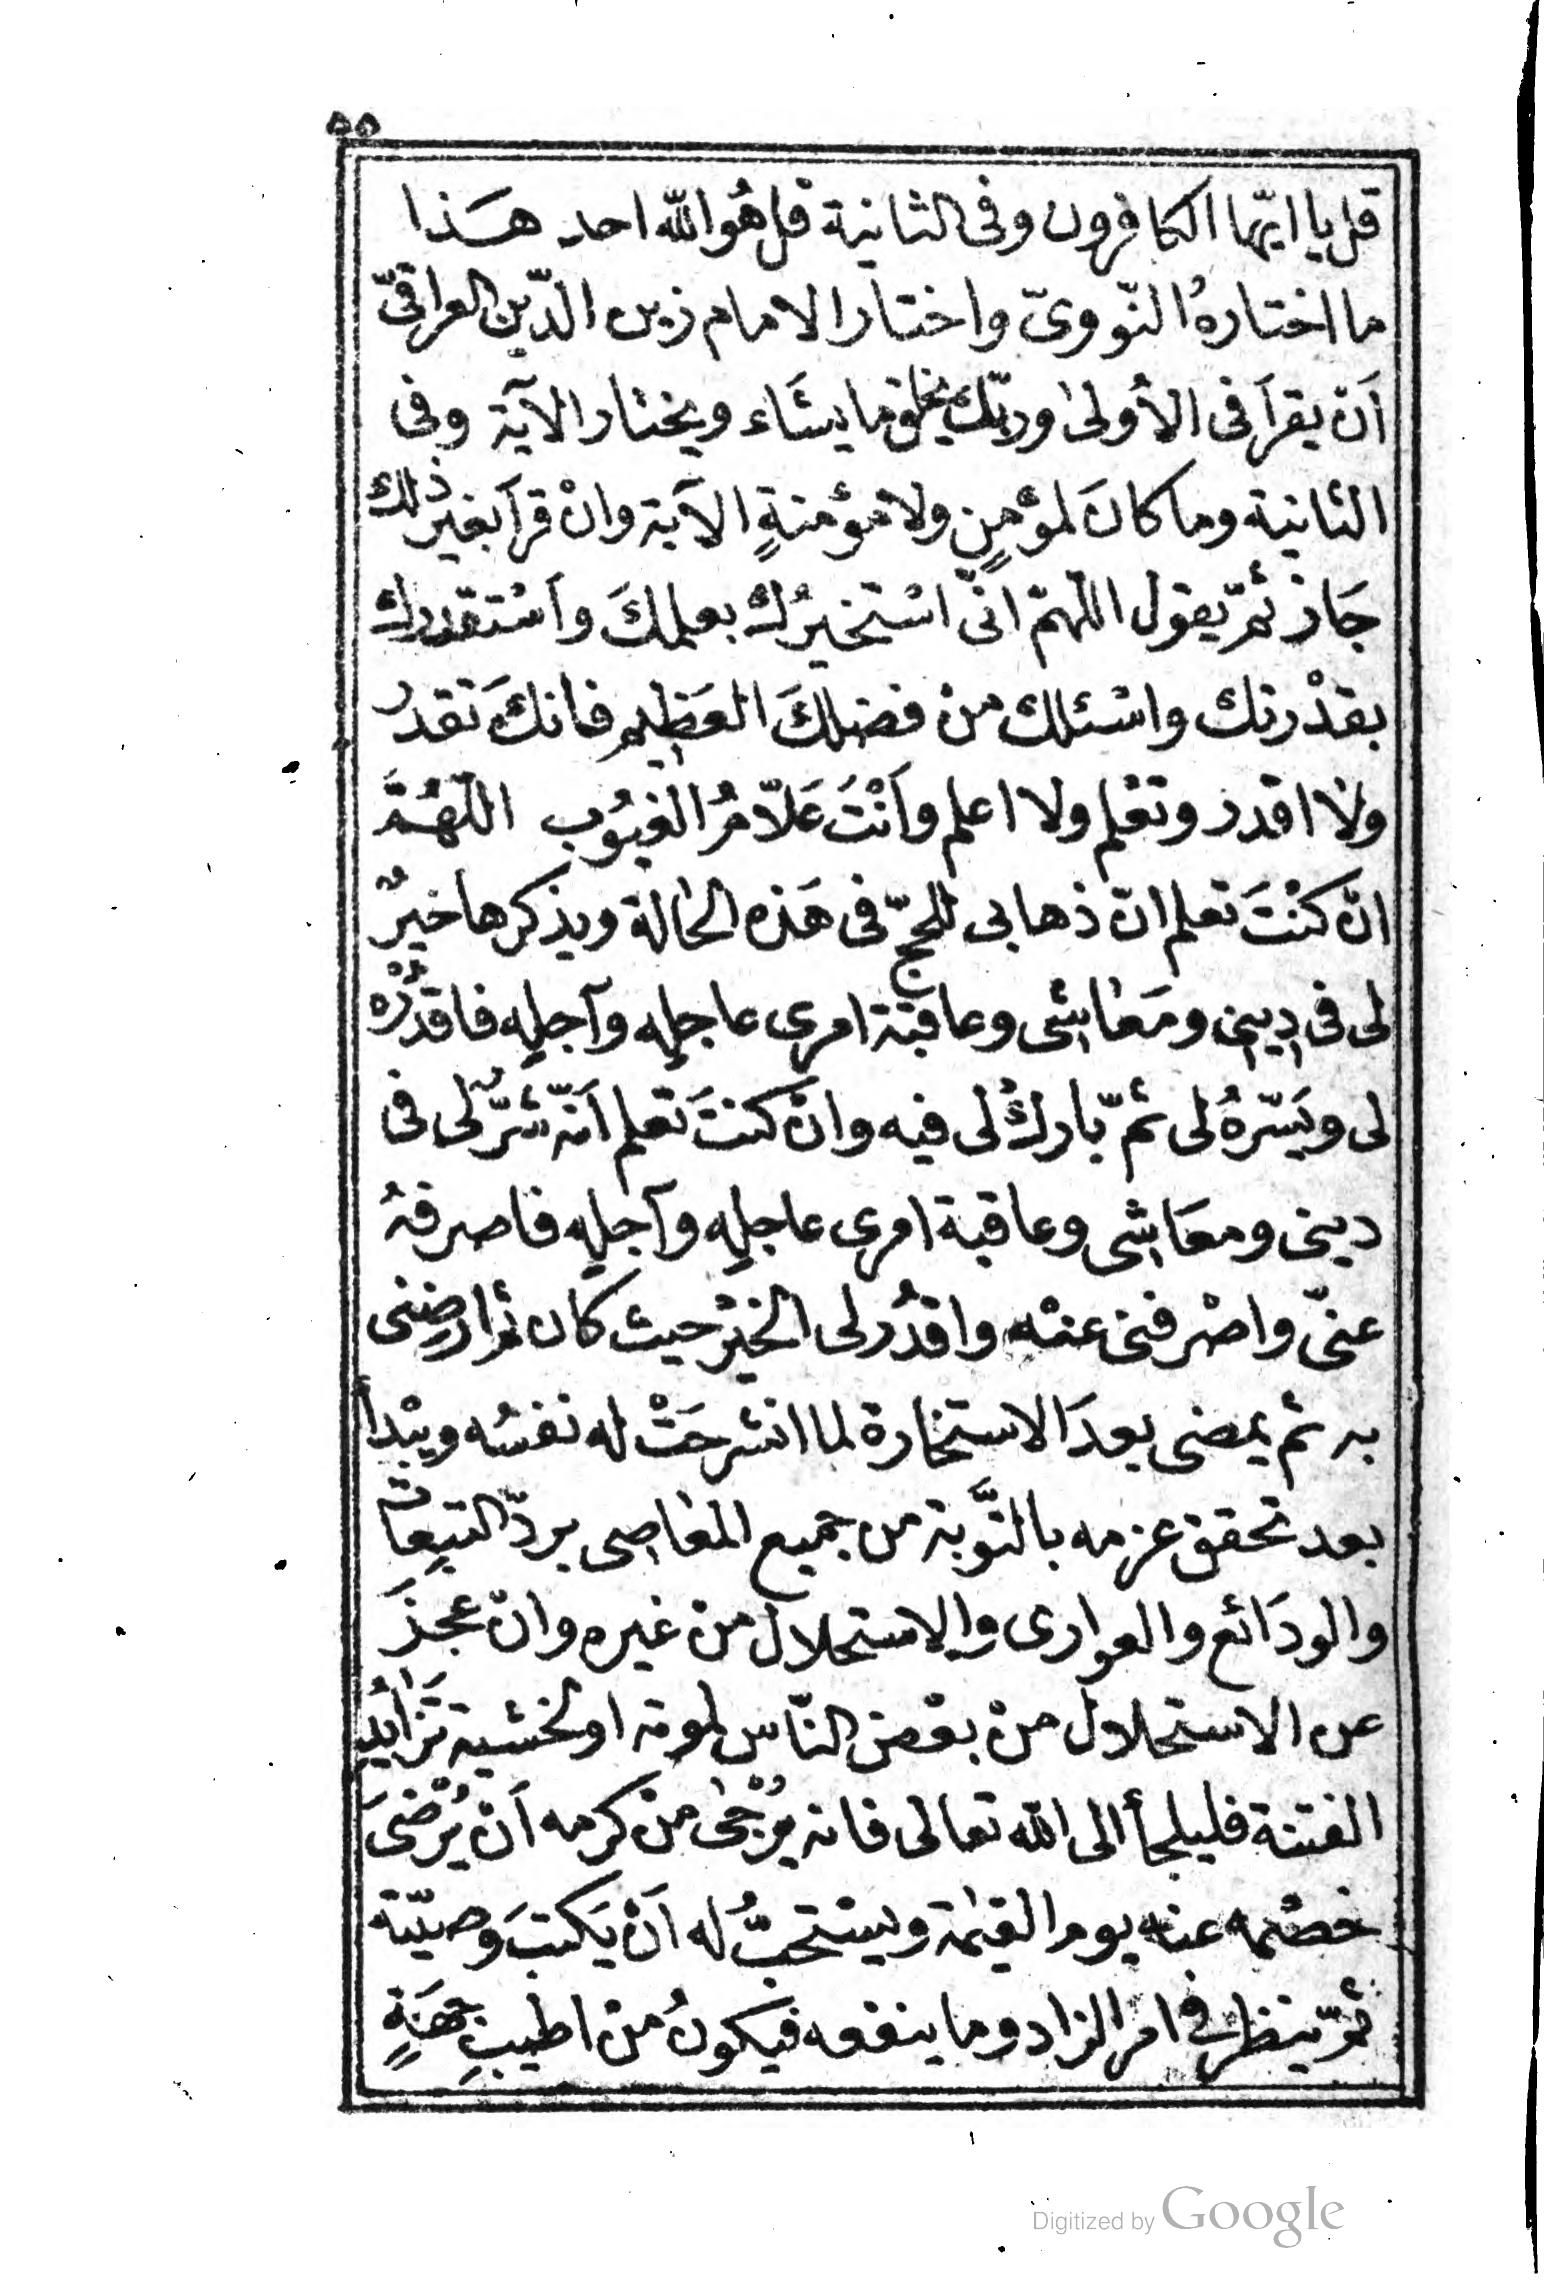 ٥٥
قل يا ايّها الكافرون وفى الثانية قل هُو اللّه احد هَذا
ما اختارهُ النّووىّ واختار الامام زين الدّين العراقىّ
اَنْ يقرأ فى الأولىٰ وربّك يخلق ما يشَاء ويختار الآية وفى
الثانية وما كانَ لمؤمنٍ ولا مؤمنةٍ الآية وانْ قرأ بغير ذلك
جَاز ثمّ يقول اللّهمّ انّى اسْتخيرُك بعلمكَ واَسْتقدرك
بقدْرتك واسْئلك منْ فضلكَ العَظِيم فانكَ تقدرُ
ولا اقدر وتعْلم ولا اعلم واَنْتَ عَلاّمُ الغيُوب اللّهُمَّ
انْ كنْتَ تعلم انّ ذهابى للحجّ فى هَذه الحالة ويذكرها خيرٌ
لى فى دِينِى ومَعَاشِى وعاقبة امرى عاجلِه وآجلِه فاقدُرْهُ
لى ويَسّرهُ لى ثمّ بارِكْ لى فيه وانْ كنتَ تعلم اَنّه شَرٌّ لى فى
دينى ومعَاشِى وعاقبة امرى عاجلِه وآجلِه فاصرفهُ
عنّى واصْرفنى عنْه واقدُر لى الخيْرَ حيث كان ثم ارضِنى
به ثم يمضى بعدَ الاستخارة لما انشرحَتْ له نفسُه ويبْدأ
بعد تحقق عزمه بالتَّوبة من جميع المعَاصِى بردّ التبِعَات
والودَائع والعوارى والاستحلال منْ غيره وانْ عجزَ
عن الاستحلال منْ بعْض النّاس لموته او لخشية تَزَايُدِ
الفتنة فليلجأ الى اللّه تعالى فانه يُرْجىٰ منْ كرمه اَنْ يُرْضىَ
خصْمه عنه يوم القيٰمة ويسْتحبُّ له اَنْ يَكتبَ وصيّته
ثمّ ينظر فى امر الزاد وما ينفعه فيكونُ منْ اطيبِ جهَةٍ
Digitized by Google